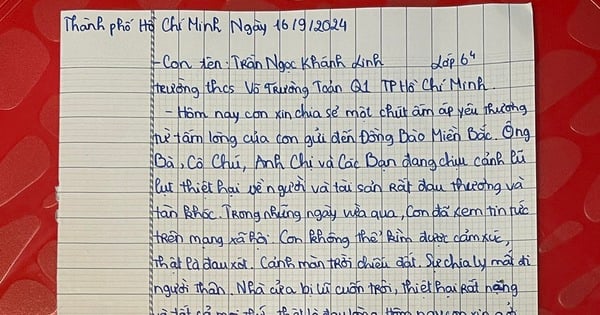 Thành phố Hồ Chí Minh Ngày 16/9/2024
- Con tên: Trần Ngọc Khánh Linh Lớp 6⁴
trường thcs Võ Trường Toản Q1 TP Hồ Chí Minh.
- Hôm nay con xin chia sẻ một chút ấm áp yêu thương
từ tấm lòng của con gửi đến Đồng Bào Miền Bắc. Ông
Bà, Cô Chú, Anh Chị và Các Bạn đang chịu cảnh lũ
lụt thiệt hại về người và tài sản Rất đau thương và
tàn khốc. Trong những ngày vừa qua, Con đã xem tin tức
trên mạng xã hội. Con không thể kìm được cảm xúc,
thật là đau xót. Cảnh màn trời chiếu đất. Sự chia ly mất đi
người thân. Nhà cửa bị lũ cuốn trôi, thiệt hại Rất nặng